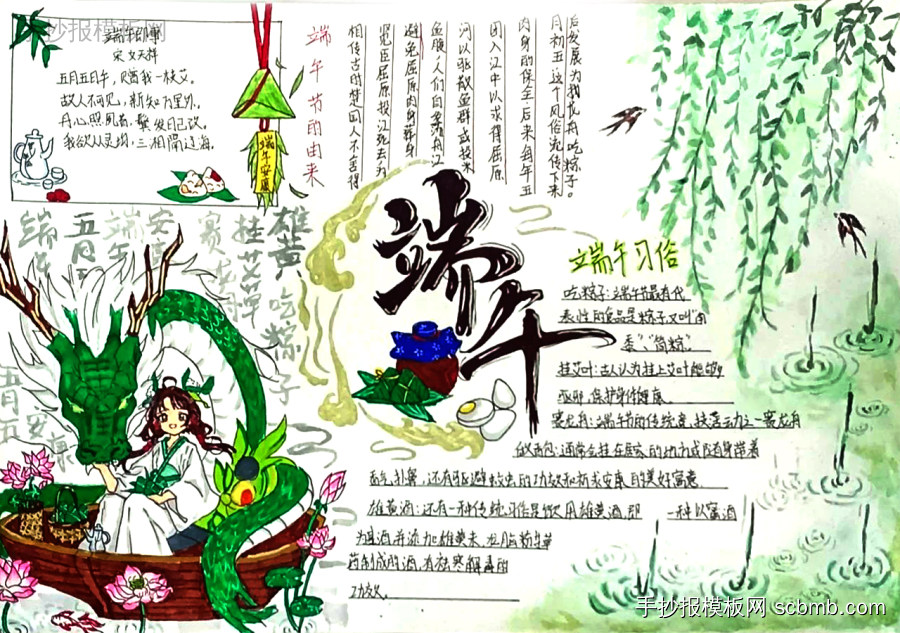 手抄报模板网
端午即事
宋 文天祥
五月五日午，赠我一枝艾。
故人不可见，新知万里外。
丹心照夙昔，鬓发日已改。
我欲从灵均，三湘隔辽海。
端午安康
端午节的由来
相传古时楚国人不舍得
贤臣屈原投江死去，为
避免屈原肉身葬身
鱼腹，人们自
河以驱散鱼群或投米
团入江中以求得屈原
肉身的保全后来每年五
月初五这个风俗流传下来
后发展为我龙舟吃粽子。
端午
五月五
端午
安康
赛龙舟
挂艾草
雄黄
吃粽子
五月五
安康
端午
端午习俗
吃粽子：端午节最有代
表性的食品是粽子又叫"角
黍""筒粽"。
挂艾叶：古人认为挂上艾叶能够
驱邪，保护身体健康。
赛龙舟：端午节的传统竞技活动之一赛龙舟
佩香包：通常会挂在居家的地方或随身带着
香气扑鼻，还有驱避蚊虫的功效和祈求安康的美好寓意。
雄黄酒：还有一种传统习俗是饮用雄黄酒，即 一种以富酒
为基酒并添加雄黄末
药制成的酒，有祛寒解毒的
功效。
手抄报模板网 scbmb.com